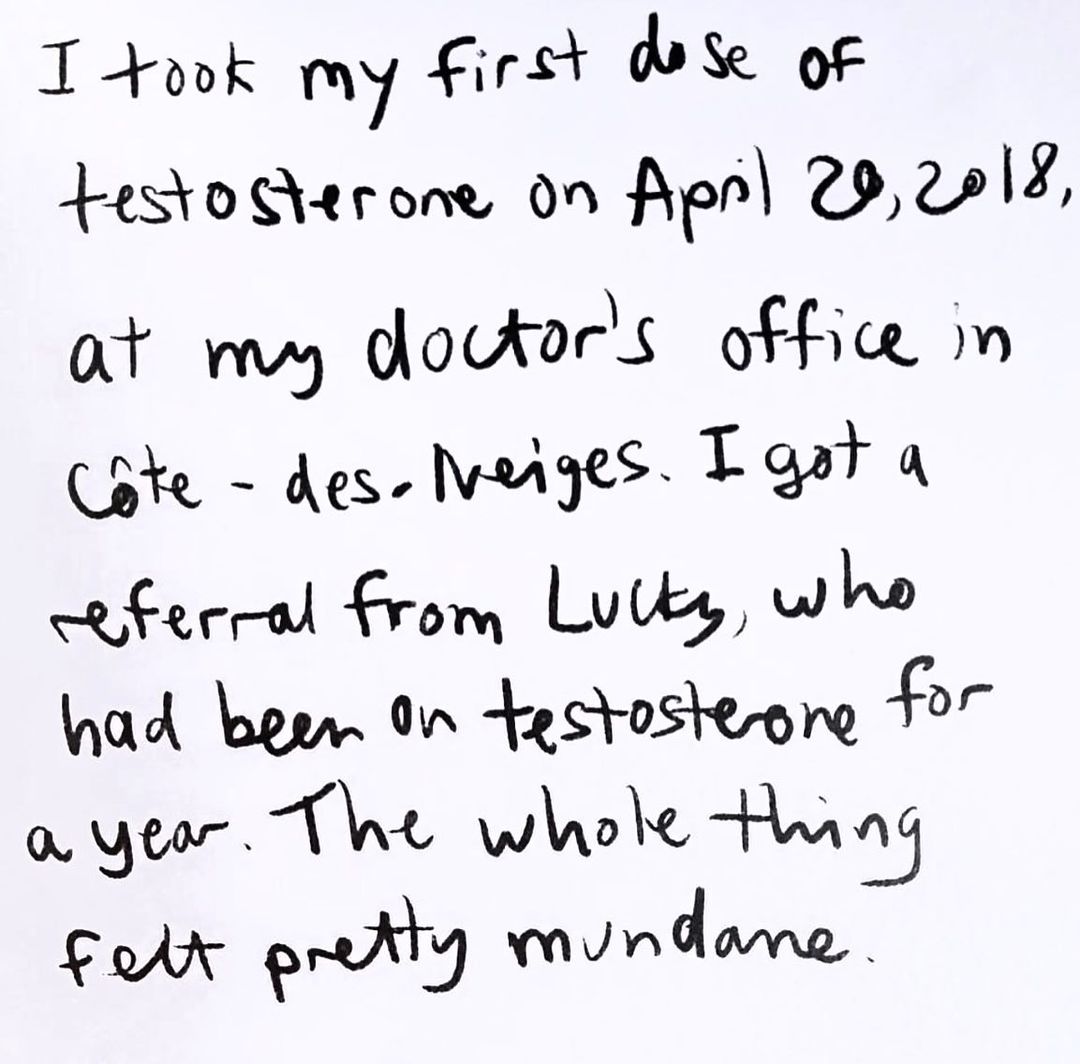 I took my first dose of
testosterone on April 20, 2018,
at my doctor's office in
Côte-des-Neiges. I got a
referral from Lucky, who
had been on testosterone for
a year. The whole thing
felt pretty mundane.